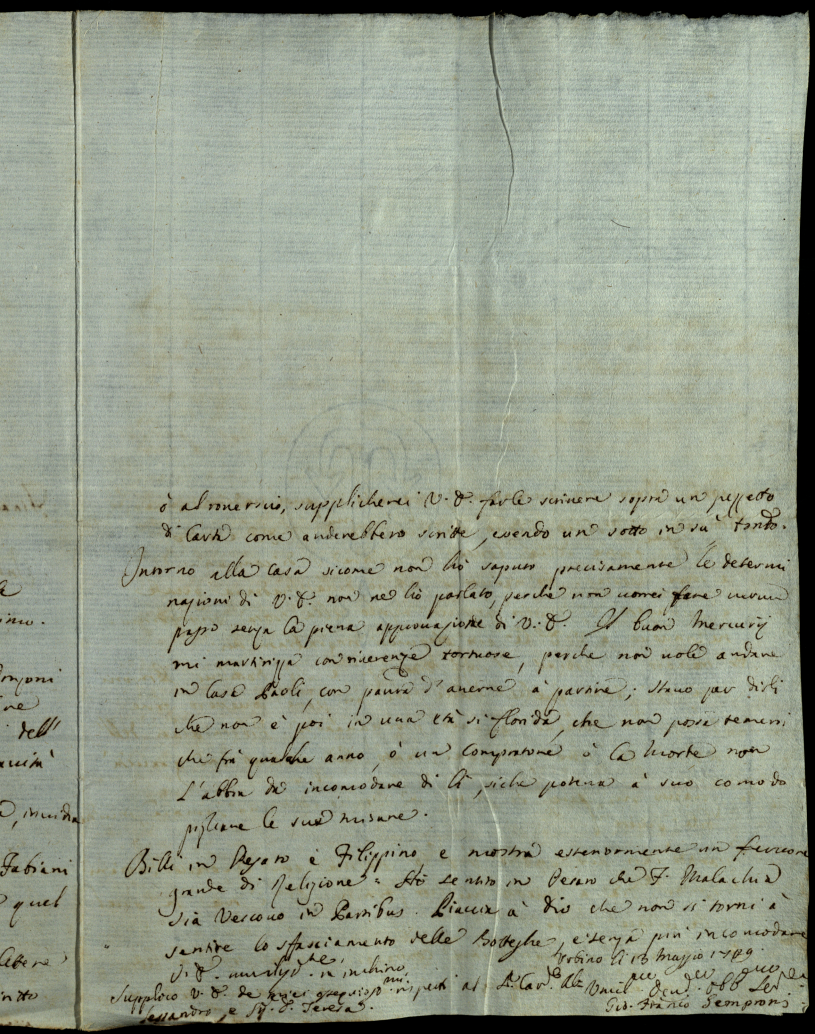 ò al rovercio, supplicherei V. E. farle scrivere sopra un pezzetto
di Carta come anderebbero scritte, essendo un sotto in sù tondo.
Intorno alla Casa sicome non hò saputo precisamente le determi
nazioni di V. E. non ne hò parlato, perche non vorrei fare verun
passo senza la piena approvazione di V. E. Il buon Mercurij
mi martirizza con riverenze tortuose, perche non vole andare
in Casa Paoli, con paura d'averne à partire; stavo par dirli
che non è poi in una età si florida, che non possa temersi
che frà qualche anno, ò un Compratore ò la Morte non
l'abbia da incomodare di lì, siche poteva à suo comodo
pigliare le sue misure.
Billi in Pesaro è Filippino e mostra esteriormente un fervore
grande di Religione. Hò sentito in Pesaro che F. Malachia
sia Vescovo in Partibus. Piaccia à Dio che non si torni à
sentire lo sfasciamento delle Botteghe, e senza più incomodare
V. E. m'inchino
Urbino li Maggio
Supplico V. E. de miei rispetti al S. Cav.
Umil. Dev. Obb. Ser
essandro, e Sig. Teresa.
Gio. Franco Semproni
ò
imo.
onzoni
ine
dell'
invidia
Fabiani
quel
ritto